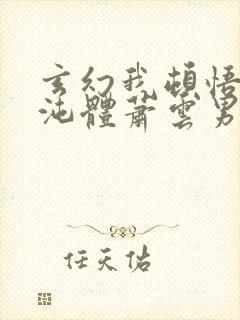 玄幻我頓悟
沌體蕭雲男
任天佑